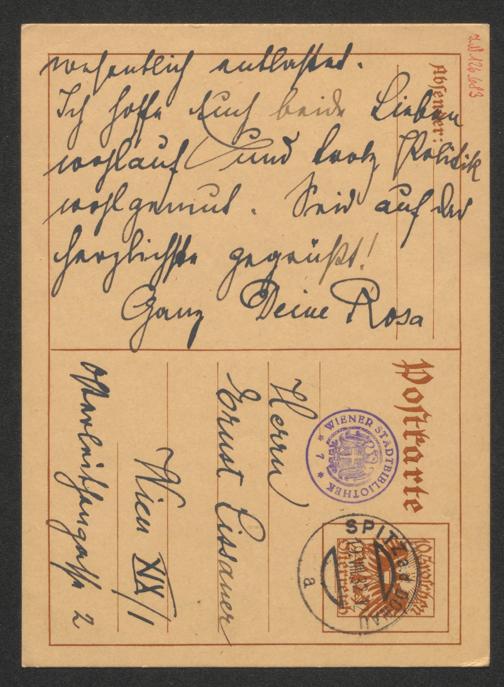 wesentlich entlastet.
Ich hoffe Euch beide Lieben
wohlauf und trotz Politik
wohlgemut. Seid auf das
herzlichste gegrüßt!
Ganz Deine Rosa
Absender:
I.N. 126.683
Postkarte
WIENER STADTBIBLIOTHEK
* 7 *
SPITZ a.d. DONAU
a
10 Groschen
Österreich
Herrn
Ernst Lissauer
Wien XIX/1